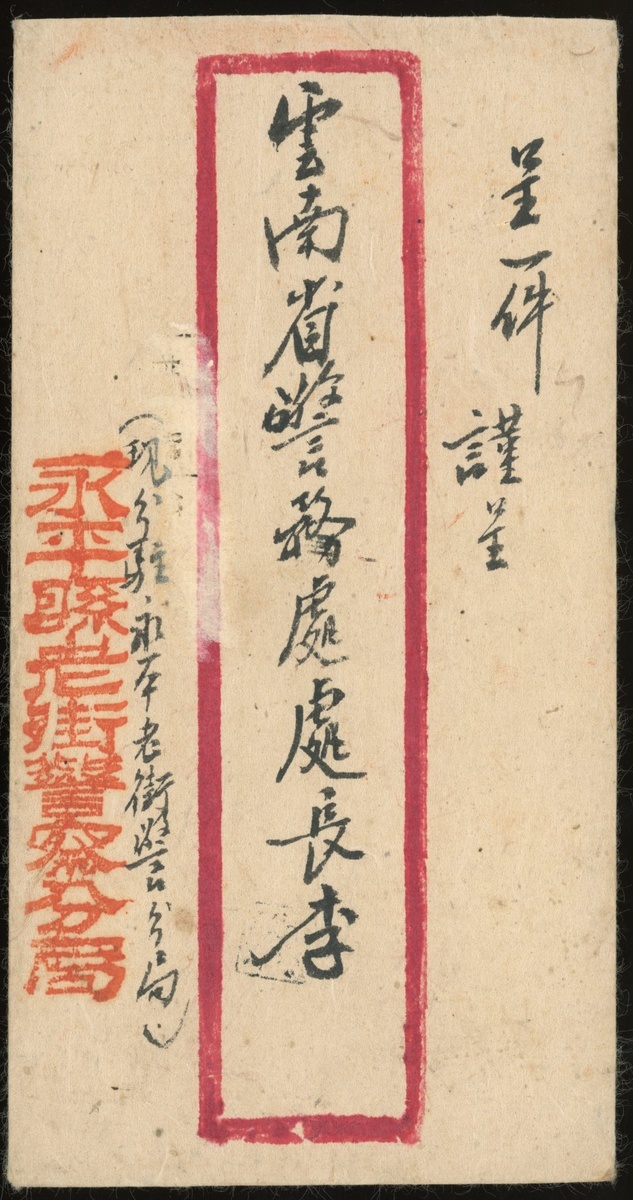 呈一件
謹呈
雲南省警務處處長李
（現分駐永平老街警分局）
永平縣老街警察分局